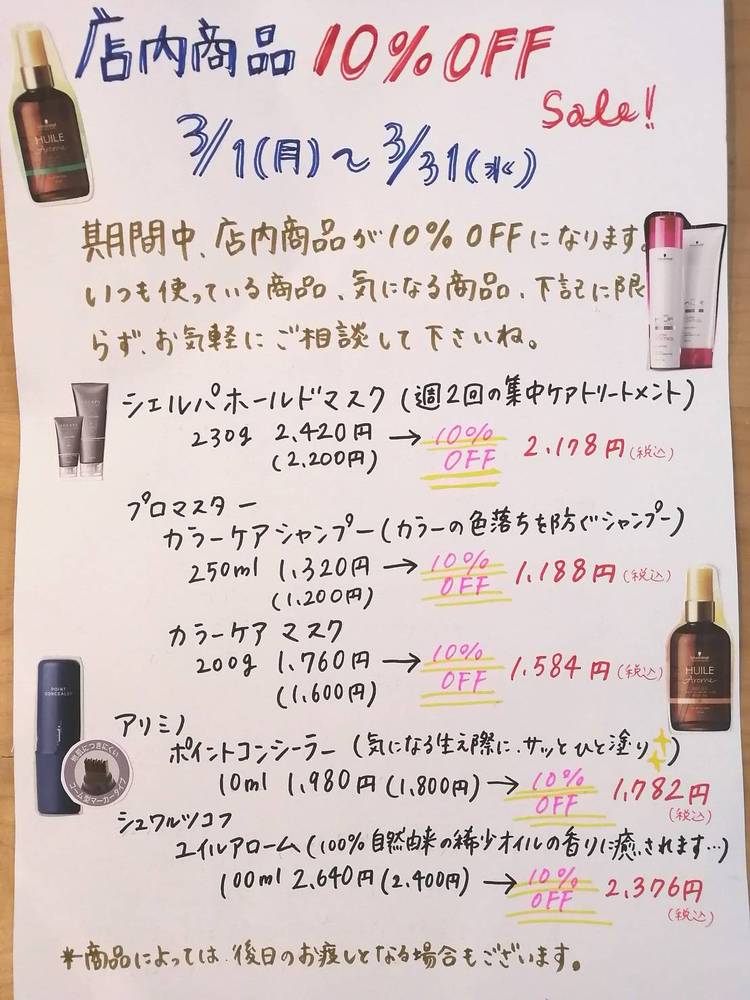 店内商品 10% OFF
Sale!!
3/1(月)〜3/31(水)
期間中、店内商品が10% OFFになります。
いつも使っている商品、気になる商品、下記に限
らず、お気軽にご相談して下さいね。
シェルパホールドマスク(週2回の集中ケアトリートメント)
230g 2,420円 → 10% OFF 2,178円(税込)
(2,200円)
プロマスター
カラーケアシャンプー(カラーの色落ちを防ぐシャンプー)
250ml 1,320円 → 10% OFF 1,188円(税込)
(1,200円)
カラーケア マスク
200g 1,760円 → 10% OFF 1,584円(税込)
(1,600円)
アリミノ
ポイントコンシーラー(気になる生え際に、サッとひと塗り)
10ml 1,980円(1,800円) → 10% OFF 1,782円
(税込)
シュワルツコフ
ユイルアローム(100%自然由来の稀少オイルの香りに癒されます…)
100ml 2,640円(2,400円) → 10% OFF 2,376円
(税込)
*商品によっては、後日のお渡しとなる場合もございます。
HUILE
Arome
HUILE
Arome
POINT
CONCEALER
地肌につきにくい
コーム型マーカータイプ